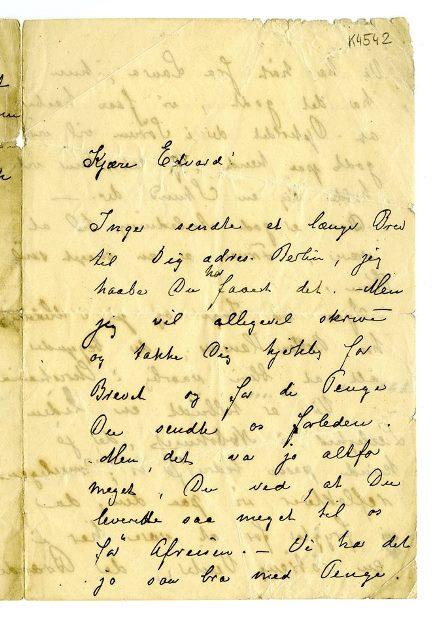 K4542
Kjære Edvard!
Inger sendte et længe Brev
til Dig adres. Berlin, jeg
haaber Du har faaet det. Men
jeg vil allegevel skrive
og takke Dig hjertelig for
Brevet og for de Penge
Du sendte os forleden.
Men det va jo altfor
meget, Du ved, at Du
leverte saa meget til os
før Afreisen. – Vi ha det
jo saa bra med Penge.